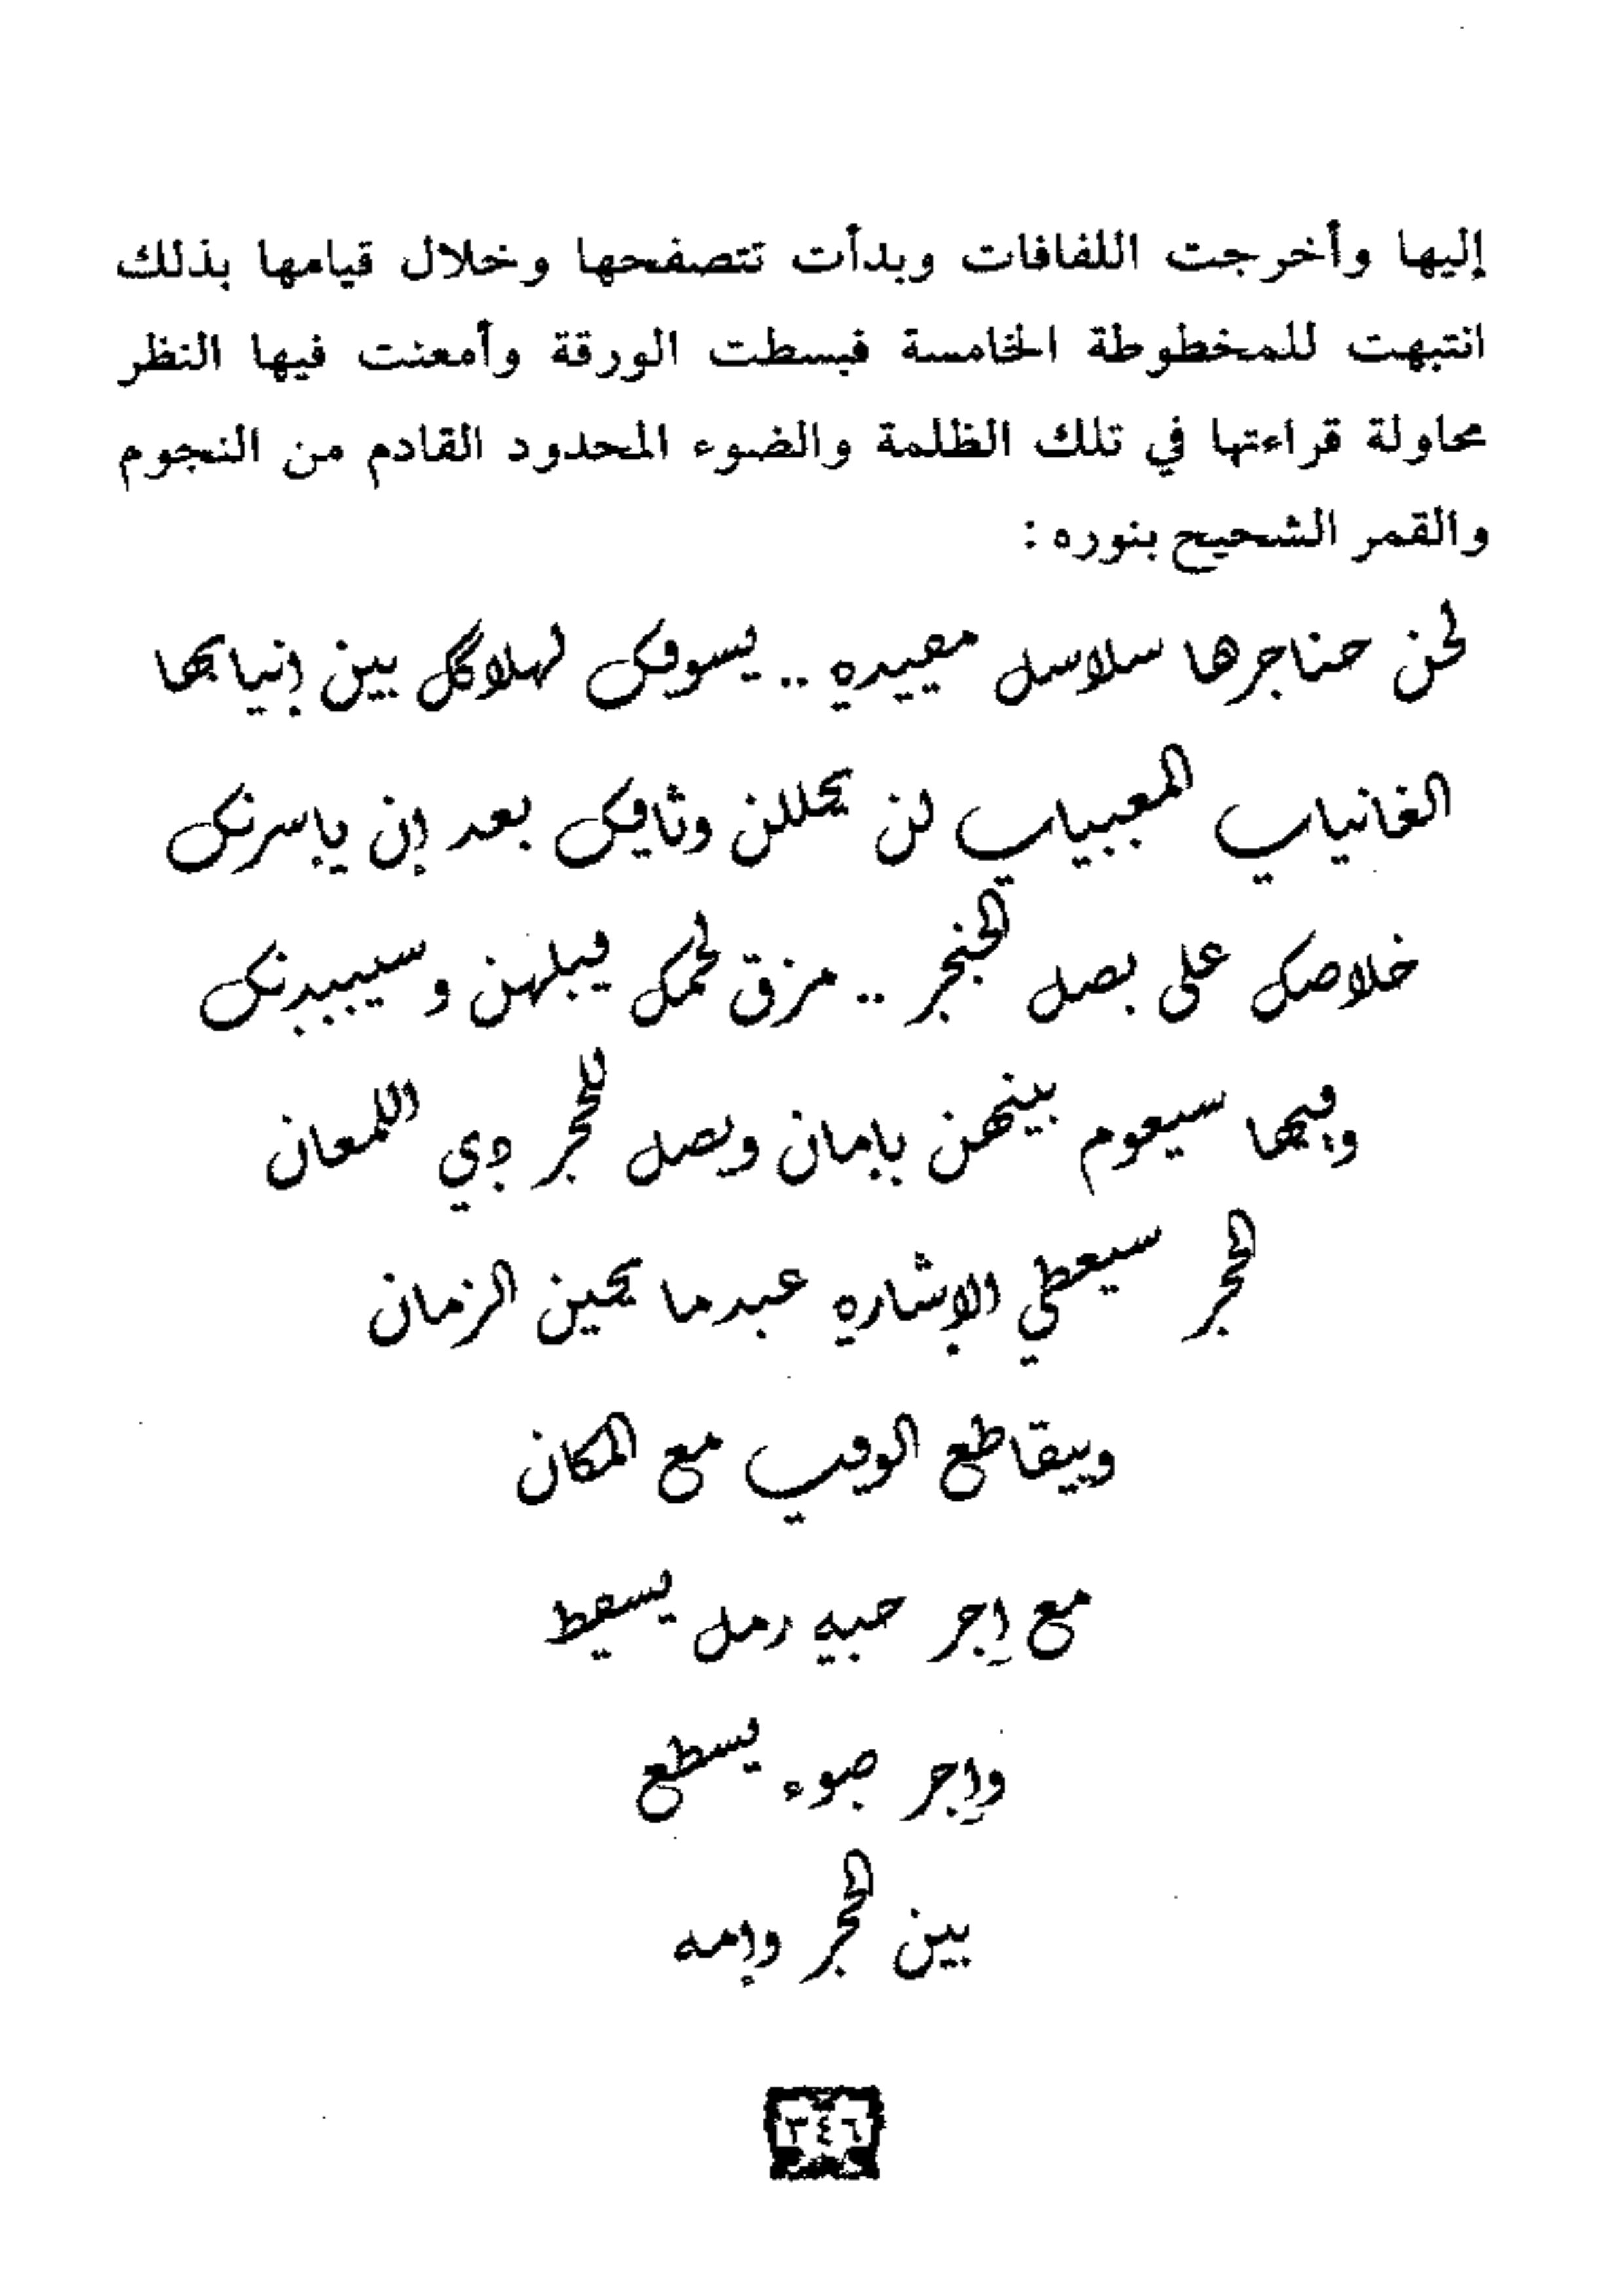 إليها وأخرجت اللفافات وبدأت تتصفحها وخلال قيامها بذلك
انتبهت للمخطوطة الخامسة فبسطت الورقة وأمعنت فيها النظر
محاولة قراءتها في تلك الظلمة والضوء المحدود القادم من النجوم
والقمر الشحيح بنوره :
لحن حناجرها سلاسل مقيدة .. يسوقك لهلاكك بين أنيابها
الغانيات المغنيات لن يحللن وثاقك بعد أن يأسرنك
خلاصك على نصل الخنجر .. مزق لحمك قبلهن وسينبذنك
وقتها ستعوم بينهن بأمان وتصل للحجر ذي اللمعان
الحجر سيعطي الإشارة عندما يحين الزمان
ويتقاطع الوقت مع المكان
مع آخر حبة رمل تسقط
وآخر ضوء يسطع
بين الحجر وأمه
٣٤٦